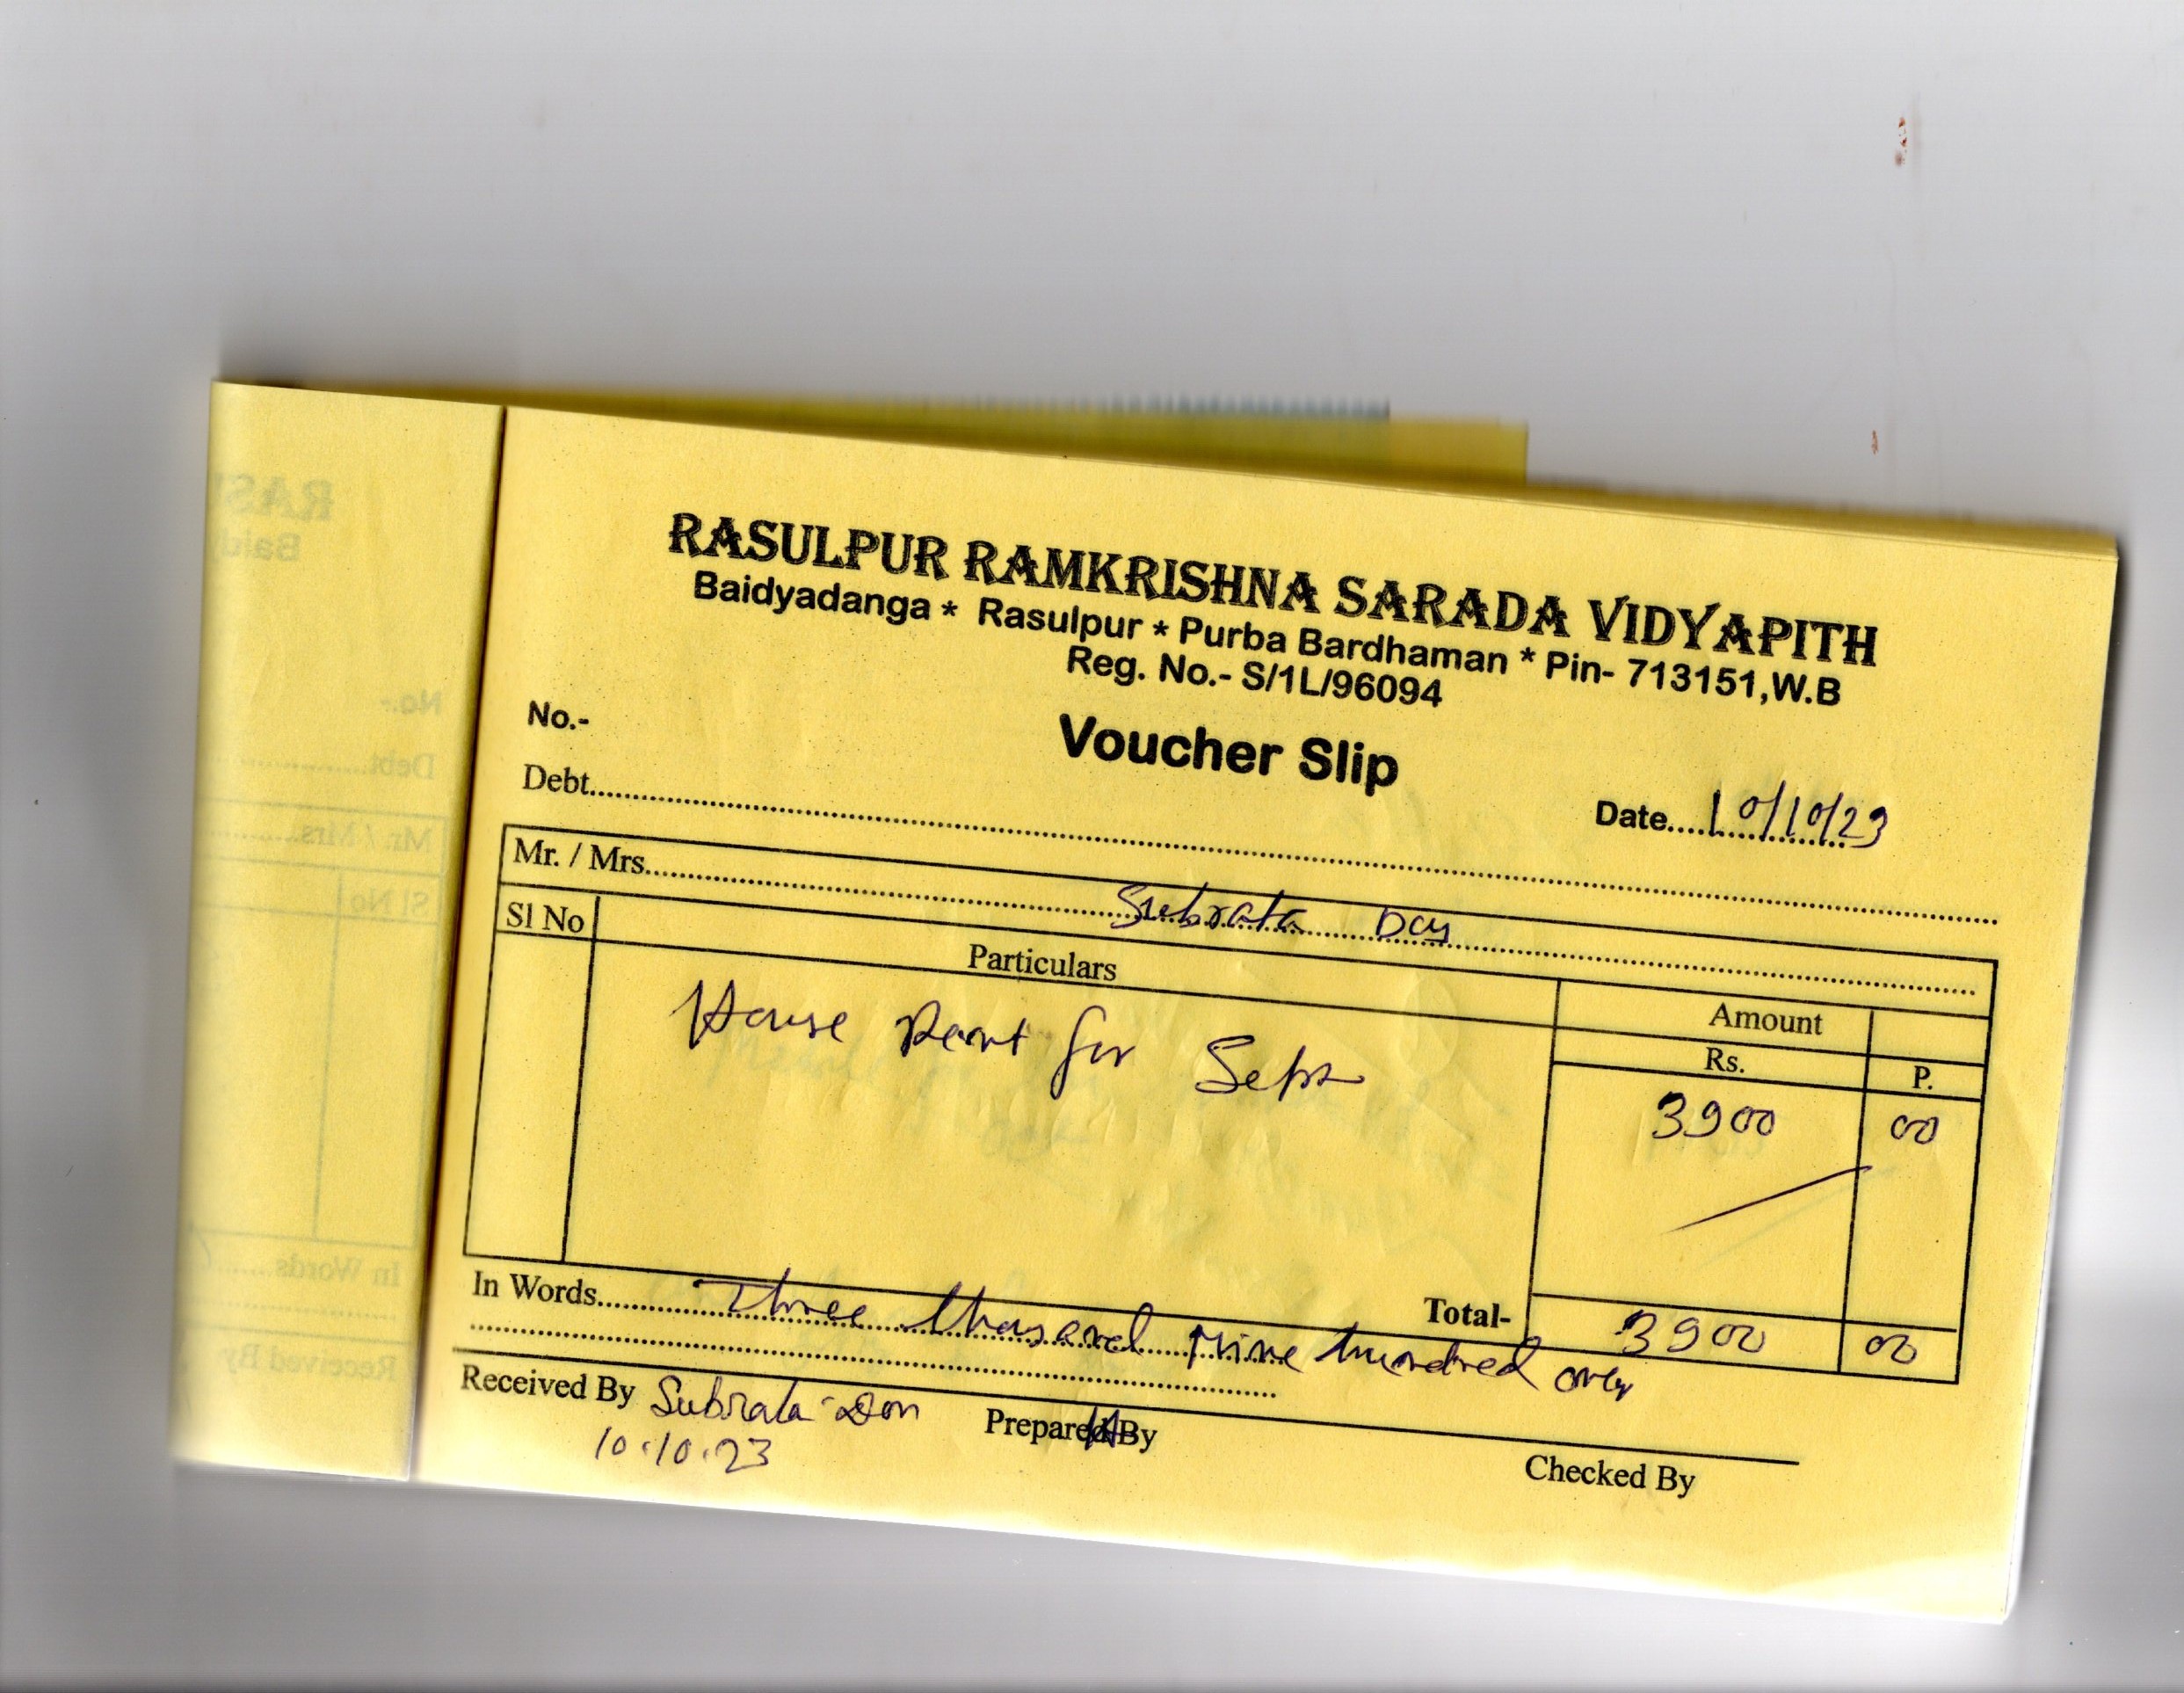 RASULPUR RAMKRISHNA SARADA VIDYAPITH
Baidyadanga * Rasulpur * Purba Bardhaman * Pin- 713151,W.B
Reg. No.- S/1L/96094
No.-
Voucher Slip
Debt
Date 10/10/23
Mr. / Mrs. Subrata
Sl No Particulars Amount
Rs. P.
House Rent for Sept
3900 00
Total- 3900 00
In Words Three thousand nine hundred only
Received By Subrata Prepared By Checked By
10.10.23